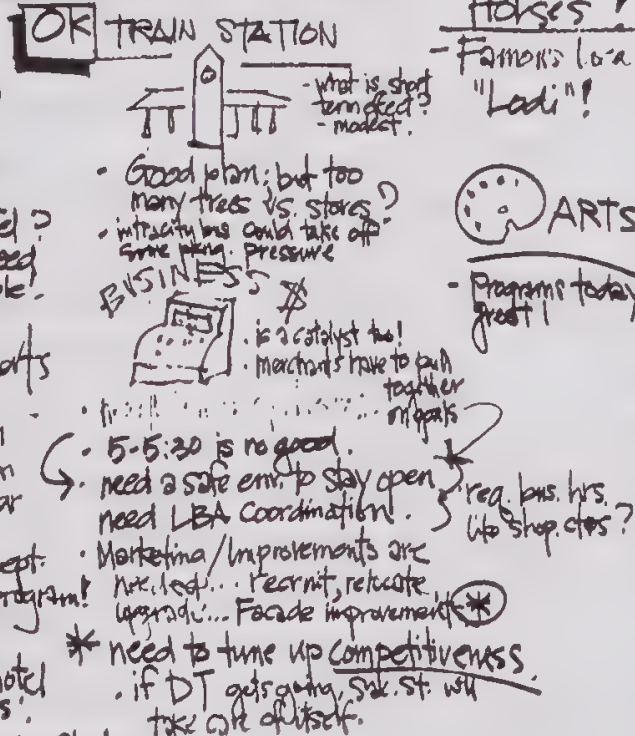 OK TRAIN STATION
- what is short
term effect?
- modest.
• Good plan; but too
many trees vs. stores?
• intracity bus could take off
some pkng. pressure
BUSINESS $
• is a catalyst too!
• merchants have to pull
together
on goals
• 5-5:30 is no good.
• need a safe env. to stay open
need LBA Coordination!
reg. bus. hrs.
like shop. ctrs?
• Marketing/Improvements are
needed... recruit, relocate
upgrade... Facade improvement *
* need to tune up competitiveness.
• if DT gets going, Sac. St. will
take care of itself.
Horses!
- Famous
"Lodi"!
ARTS
- Programs today
great!